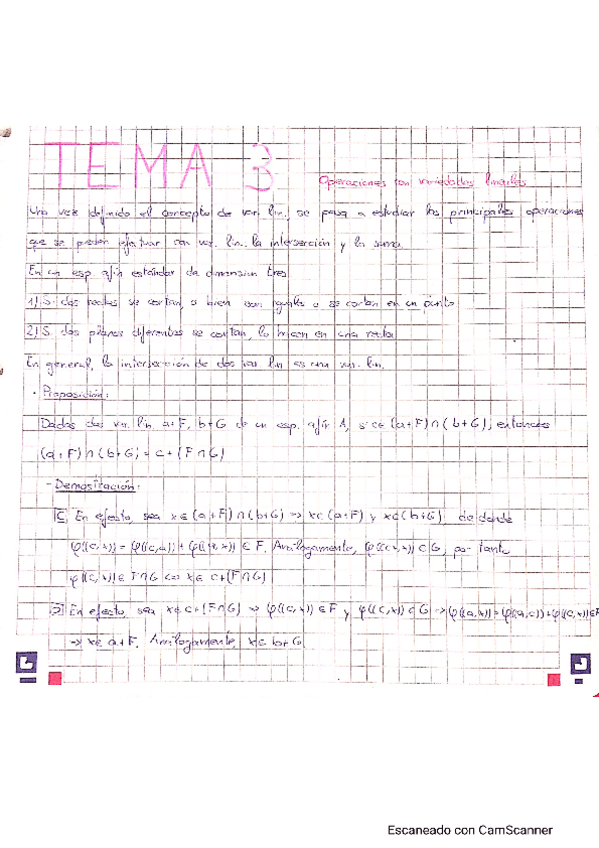 TEMA 3
Operaciones con variedades lineales
Una vez definido el concepto de var. lin., se pasa a estudiar las principales operaciones
que se pueden efectuar con var. lin. la intersección y la suma.
En un esp. afín estándar de dimension tres
1) Si dos rectas se cortan, o bien son iguales o se cortan en un punto
2) Si dos planos diferentes se cortan, lo hacen en una recta
En general, la intersección de dos var. lin es una var. lin.
· Proposición:
Dadas dos var. lin. a+F, b+G de un esp. afín A, si c∈(a+F)∩(b+G), entonces
(a+F)∩(b+G) = c+(F∩G)
- Demostración:
⊆ En efecto, sea x∈(a+F)∩(b+G) => x∈(a+F) y x∈(b+G), de donde
φ((c,x)) = φ((c,a)) + φ((a,x)) ∈ F. Análogamente, φ((c,x)) ∈ G, por tanto
φ((c,x)) ∈ F∩G <=> x∈ c+(F∩G)
⊇ En efecto, sea x∈ c+(F∩G) => φ((c,x)) ∈ F y φ((c,x)) ∈ G => φ((a,x)) = φ((a,c)) + φ((c,x)) ∈ F
=> x∈ a+F. Análogamente, x∈ b+G
Escaneado con CamScanner